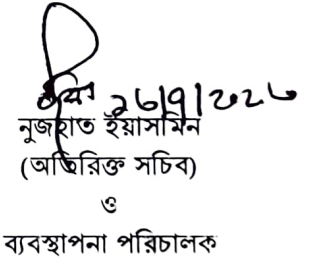 নুজহাত ইয়াসমিন
(অতিরিক্ত সচিব)
ও
ব্যবস্থাপনা পরিচালক